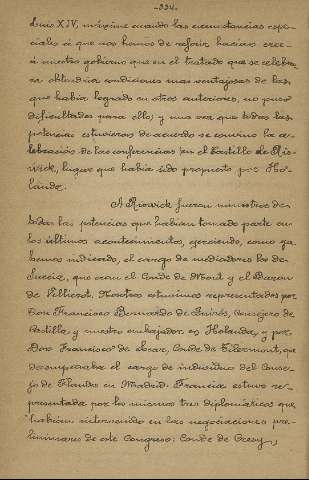 -334-
Luis XIV, máxime cuando las circunstancias espe-
ciales á que nos hemos de referir hacían cree-
á nuestro gobierno que en el tratado que se celebra-
ra obtendría condiciones mas ventajosas de las
que había logrado en otros anteriores, no puso
dificultades para ello; y una vez que todas las
potencias estuvieron de acuerdo se convino la ce-
lebración de las conferencias en el Castillo de Ris-
wick, lugar que había sido propuesto por Ho-
landa.
A Riswick fueron ministros de
todas las potencias que habían tomado parte en
los últimos acontecimientos, ejerciendo, como ya
hemos indicado, el cargo de mediadores los de
Suecia, que eran el Conde de Bond y el Baron
de Lillieroot. Nosotros estuvimos representados por
Don Francisco Bernardo de Quirós, Consejero de
Castilla y nuestro embajador en Holanda, y por
Don Francisco de Conde de Tilermont, que
desempeñaba el cargo de individuo del Conse-
jo de Flandes en Madrid. Francia estuvo re-
presentada por los mismos tres diplomáticos que
habían intervenido en las negociaciones pre-
liminares de este Congreso: Conde de Crecy,